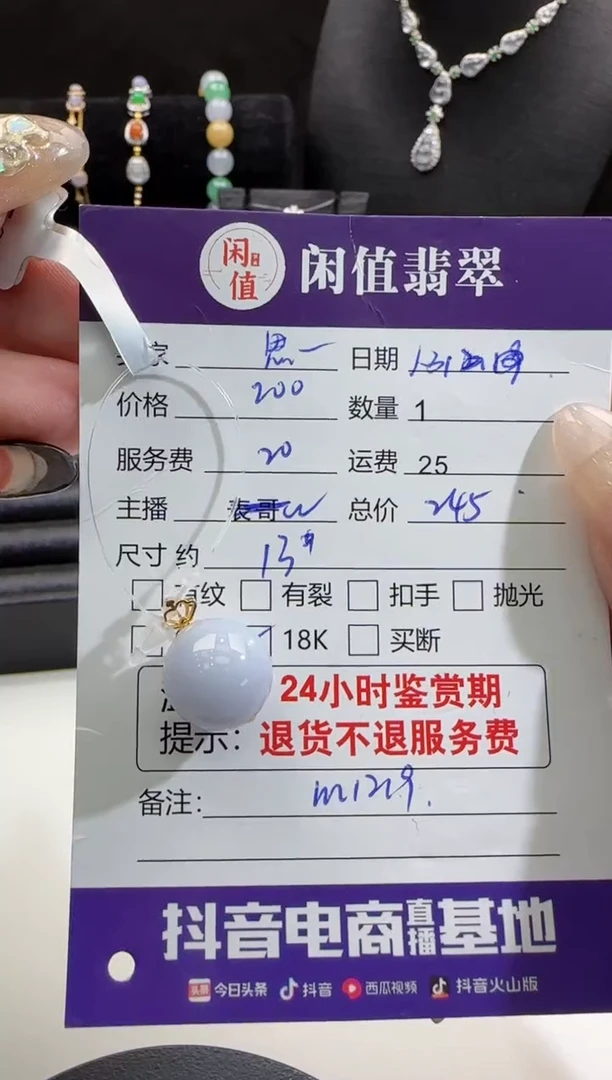 闲值
闲值翡翠
家 思一 日期
价格 200 数量 1
服务费 20 运费 25
主播 表哥 总价 245
尺寸 约 13
纹 有裂 扣手 抛光
18K 买断
24小时鉴赏期
提示：退货不退服务费
备注：m1219.
抖音电商直播基地
头条 今日头条 抖音 西瓜视频 抖音火山版